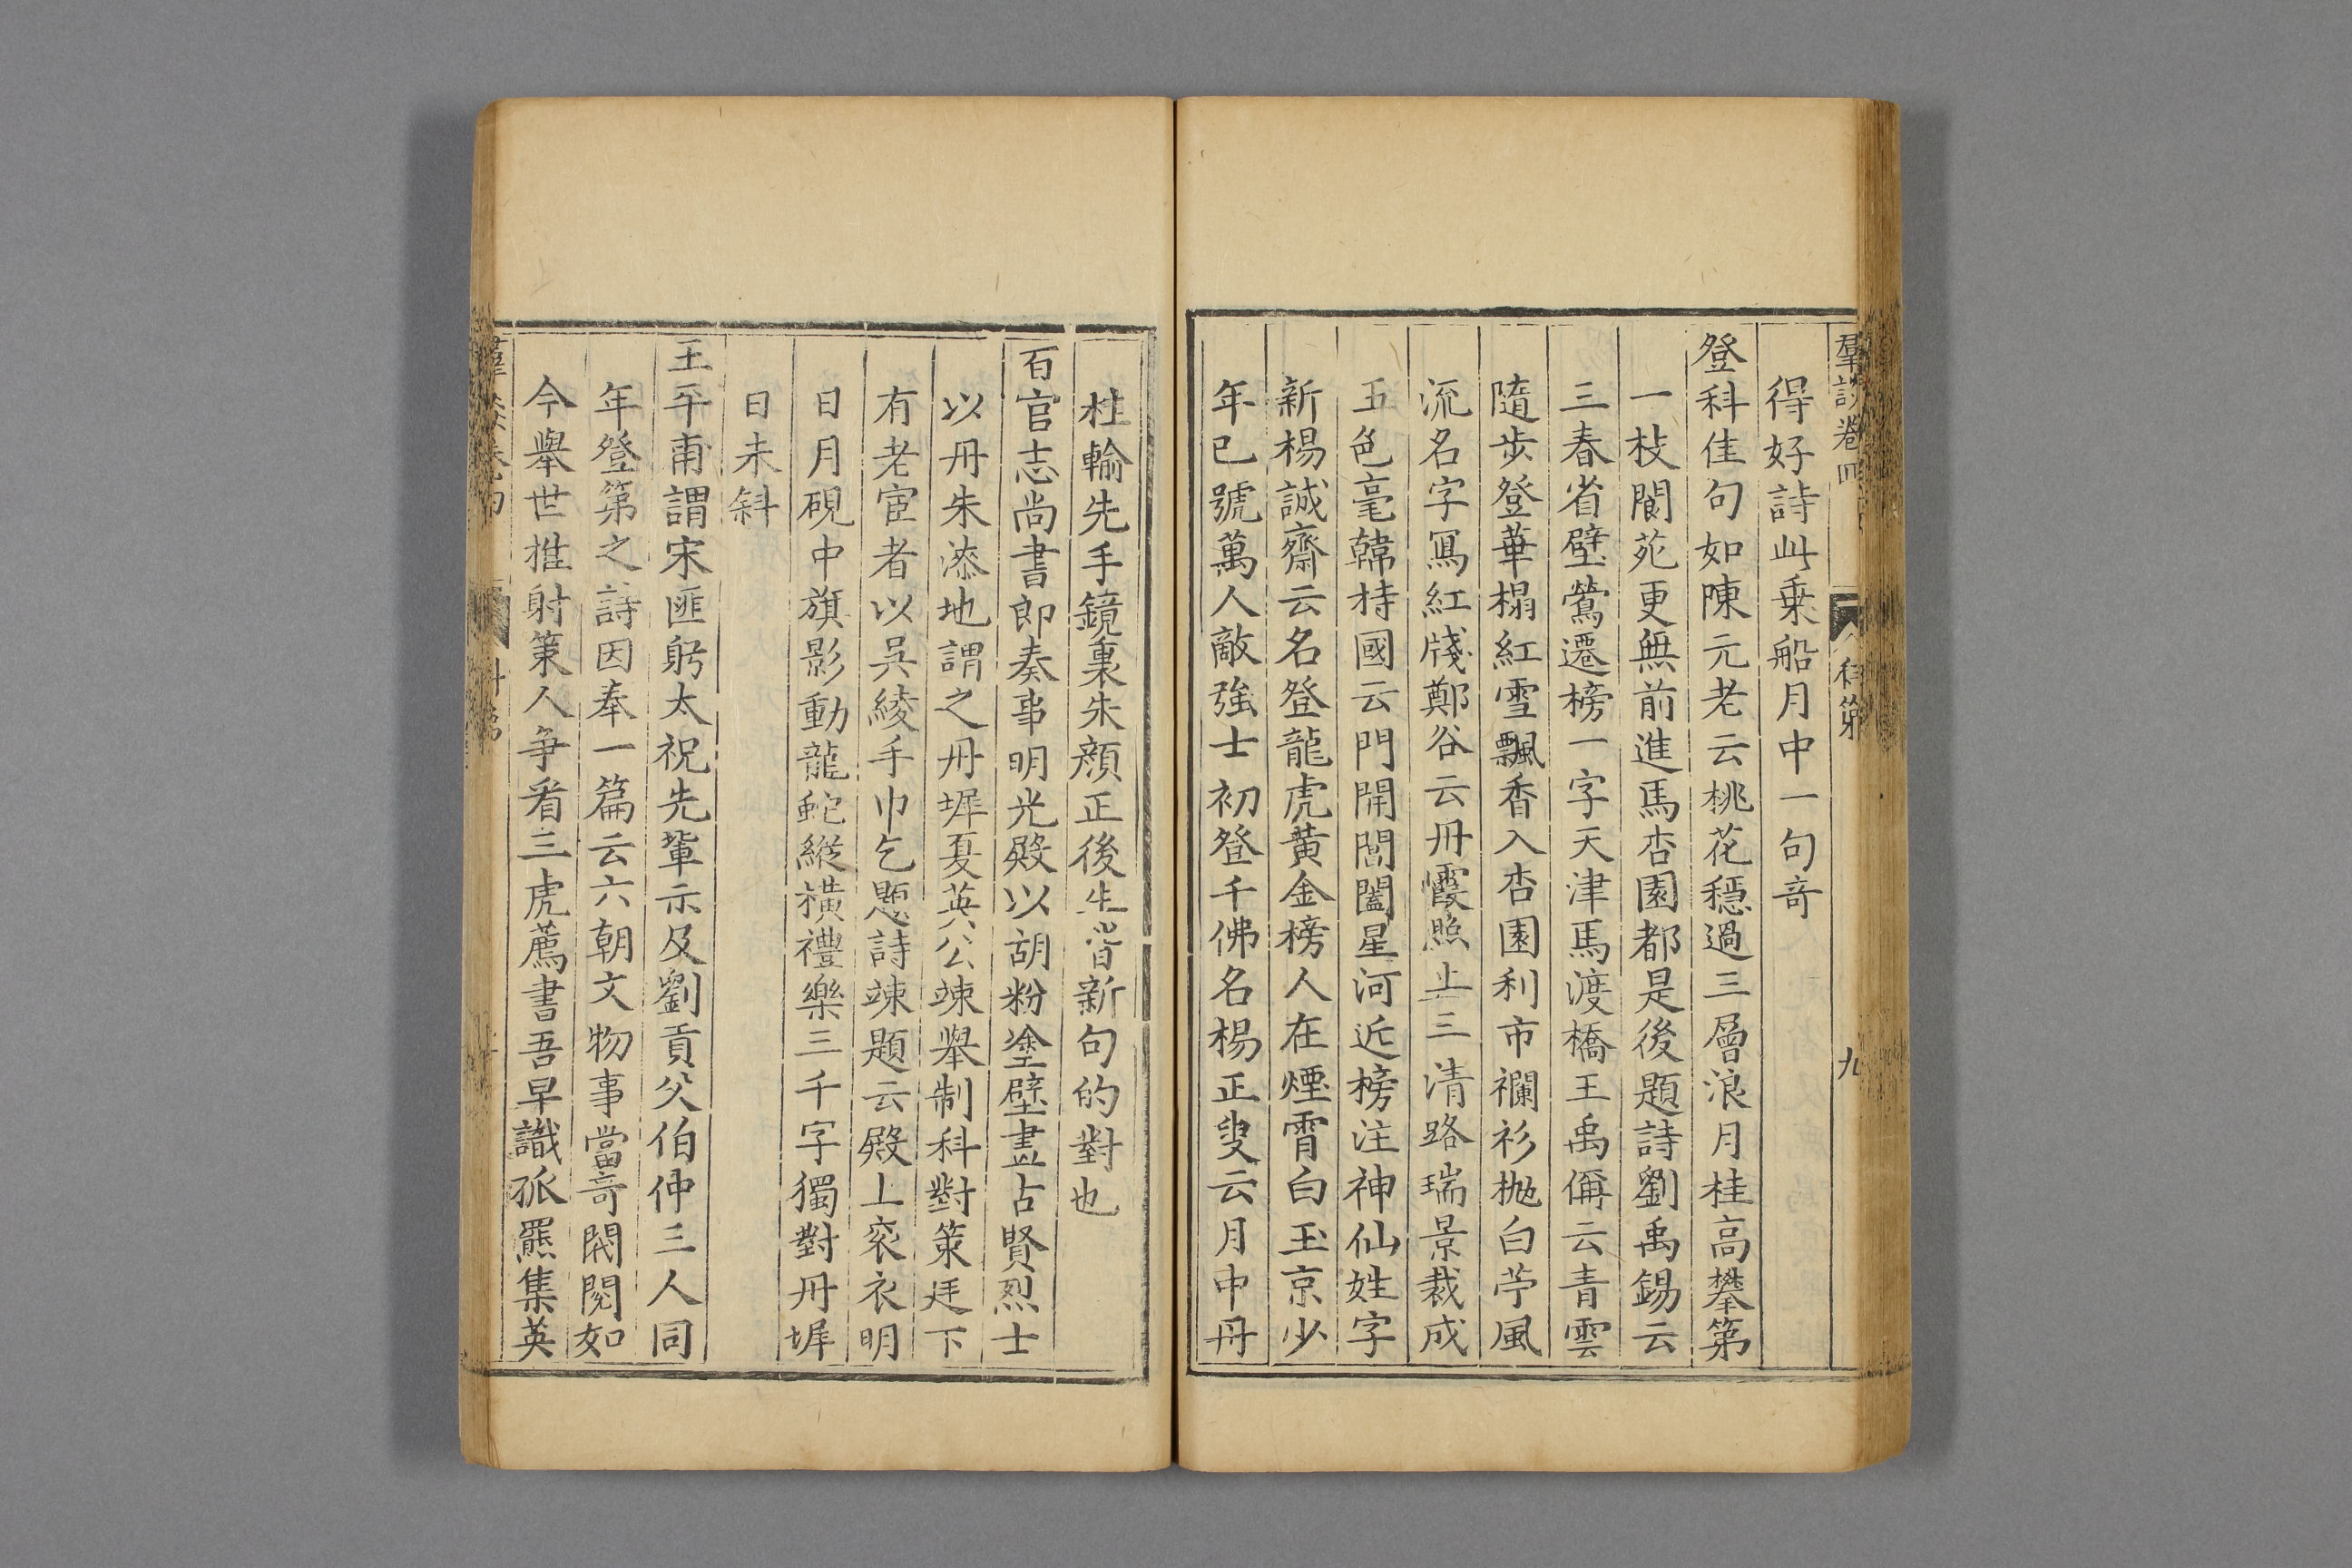 羣談卷四 科第 九
得好詩此乗船月中一句竒
登科佳句如陳元老云桃花穩過三層浪月桂高攀第
一枝閬苑更無前進馬杏園都是後題詩劉禹錫云
三春省壁鶯遷榜一字天津馬渡橋王禹偁云青雲
隨步登華榻紅雪飄香入杏園利市襴衫抛白苧風
流名字冩紅牋鄭谷云丹霞照上三清路瑞景裁成
五色毫韓持國云門開閶闔星河近榜注神仙姓字
新楊誠齋云名登龍虎黄金榜人在煙霄白玉京少
年已號萬人敵強士初登千佛名楊正叟云月中丹
桂輸先手鏡裏朱顔正後生皆新句的對也
百官志尚書郎奏事明光殿以胡粉塗壁畫古賢烈士
以丹朱漆地謂之丹墀夏英公竦舉制科對策廷下
有老宦者以吳綾手巾乞題詩竦題云殿上衮衣明
日月硯中旗影動龍蛇縱横禮樂三千字獨對丹墀
日未斜
王平甫謂宋匪躬太祝先軰示及劉貢父伯仲三人同
年登第之詩因奉一篇云六朝文物事當竒閥閱如
今舉世推射策人争看三虎薦書吾早識孤羆集英